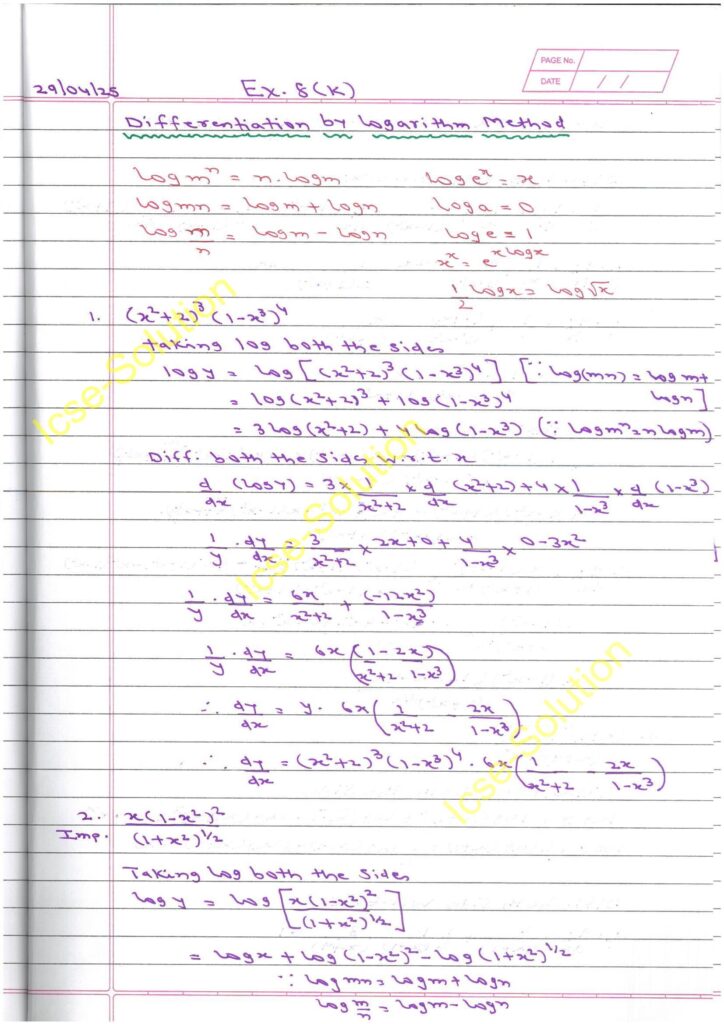 PAGE No.
DATE / /
29/04/25 Ex. 8(K)
Differentiation by Logarithm Method
log mⁿ = n. log m log eˣ = x
log mn = log m + log n log a = 0
log m/n = log m - log n log e = 1
xˣ = e^(x log x)
1/2 log x = log √x
1. (x²+2)³ (1-x³)⁴
Taking log both the sides
log y = log [(x²+2)³ (1-x³)⁴] [∵ log(mn) = log m + log n]
= log (x²+2)³ + log (1-x³)⁴
= 3 log (x²+2) + 4 log (1-x³) (∵ log mⁿ = n log m)
Diff. both the sides w.r.t. x
d/dx (log y) = 3 × 1/(x²+2) × d/dx (x²+2) + 4 × 1/(1-x³) × d/dx (1-x³)
1/y · dy/dx = 3/(x²+2) × 2x+0 + 4/(1-x³) × 0-3x²
1/y · dy/dx = 6x/(x²+2) + (-12x²)/(1-x³)
1/y · dy/dx = 6x (1/(x²+2) - 2x/(1-x³))
∴ dy/dx = y · 6x (1/(x²+2) - 2x/(1-x³))
∴ dy/dx = (x²+2)³ (1-x³)⁴ · 6x (1/(x²+2) - 2x/(1-x³))
2. x(1-x²)²/(1+x²)^1/2
Imp.
Taking log both the sides
log y = log [x(1-x²)²/(1+x²)^1/2]
= log x + log (1-x²)² - log (1+x²)^1/2
∵ log mn = log m + log n
log m/n = log m - log n
Icse-Solution
Icse-Solution
Icse-Solution